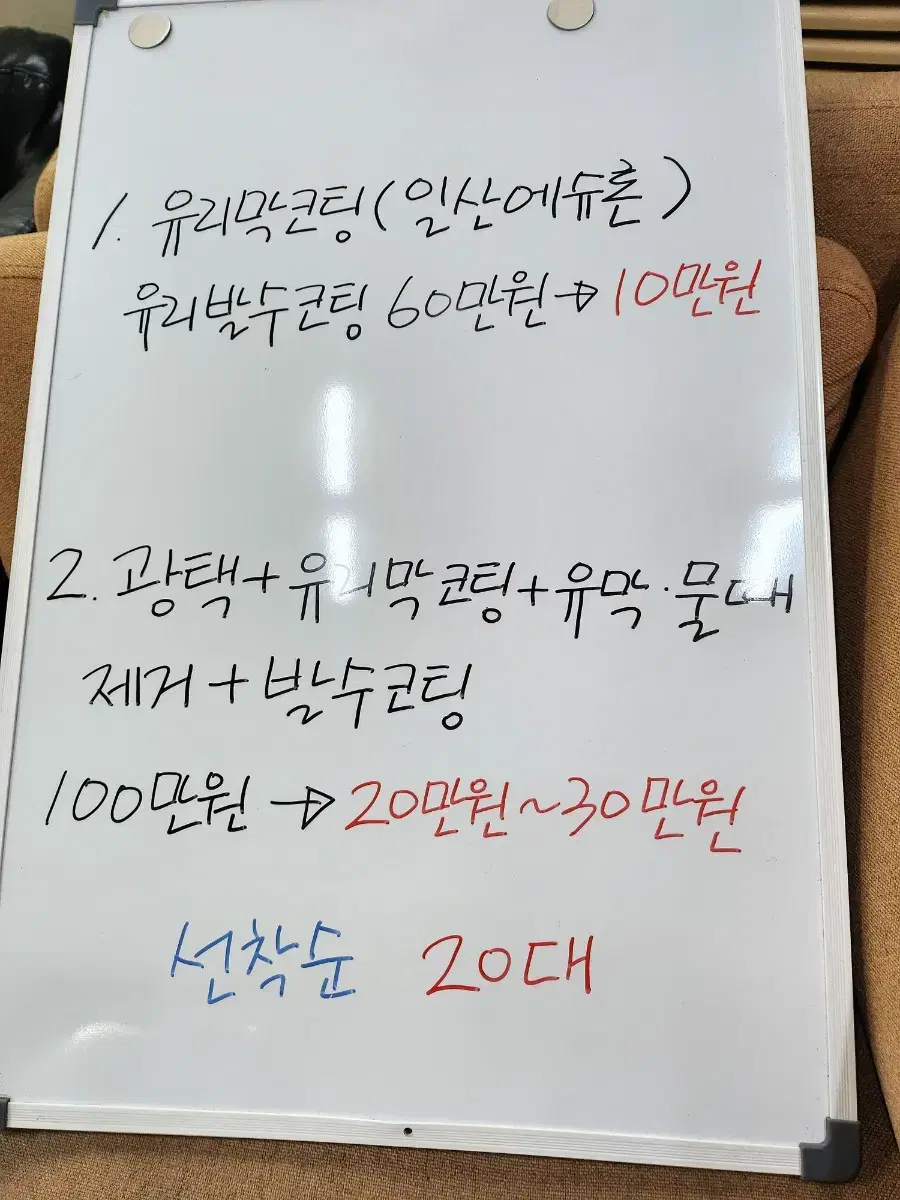 1. 유리막코팅(일산에슈론)
유리발수코팅 60만원→10만원
2. 광택+유리막코팅+유막·물때
제거+발수코팅
100만원→20만원~30만원
선착순 20대